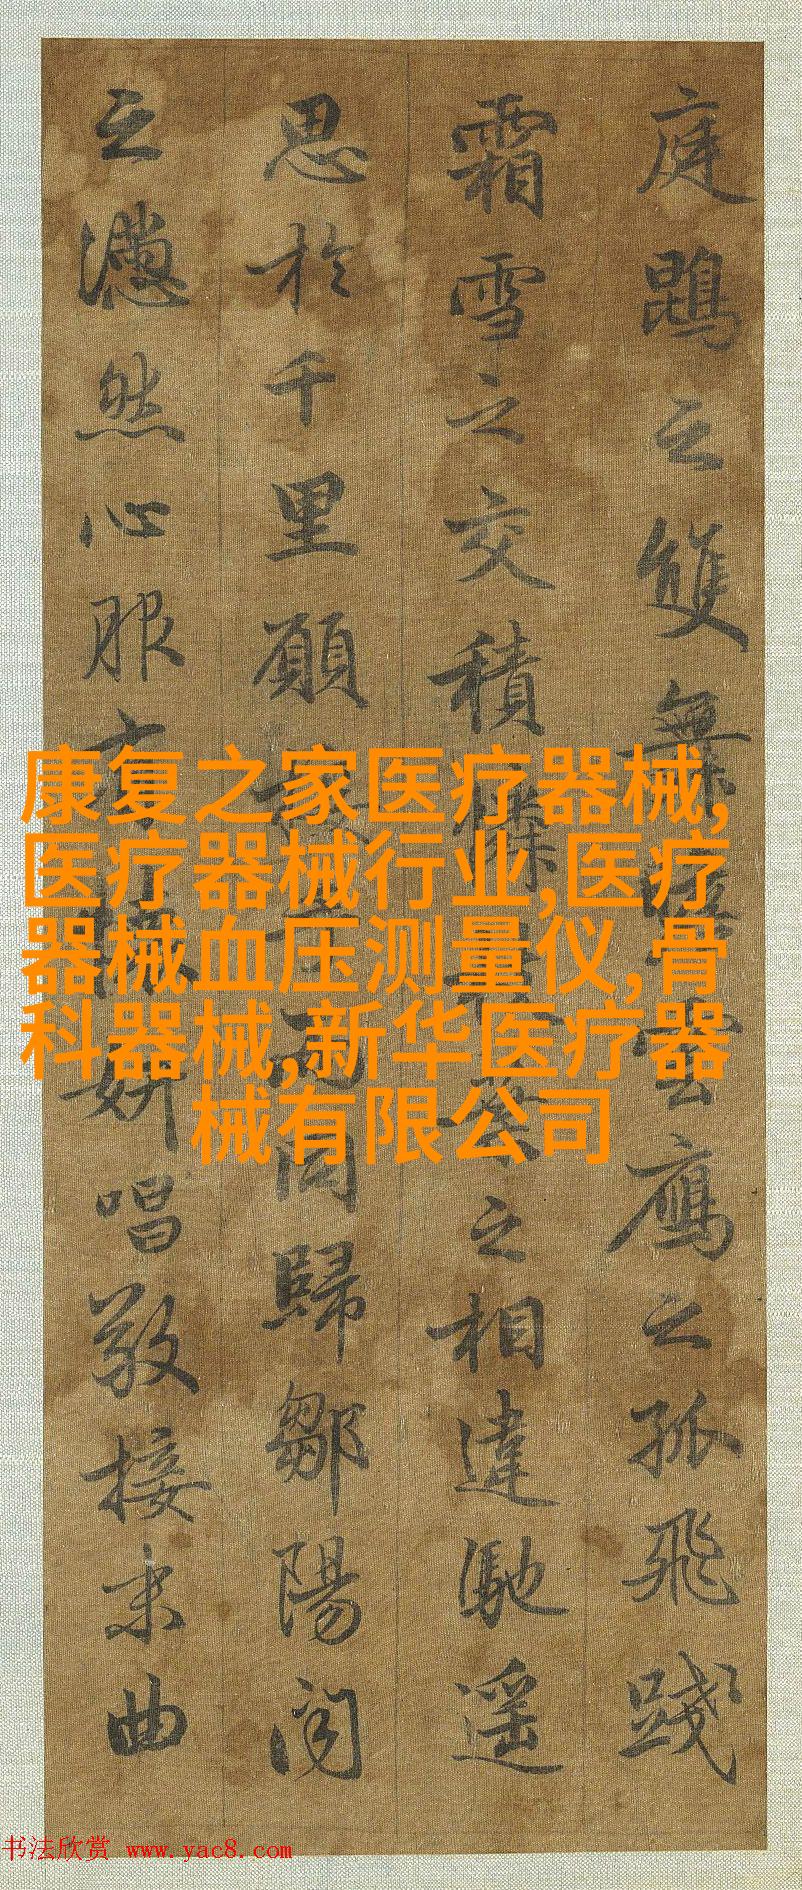 庭鵾之雙舞雲鴈之孤飛踐
霜雪之交積之相違馳遥
思於千里願而同歸鄒陽聞
之懣然心服妍唱敬接末曲
康复之家医疗器械,
医疗器械行业,医疗
器械血压测量仪,骨
科器械,新华医疗器
械有限公司
书法欣赏 www.yac8.com